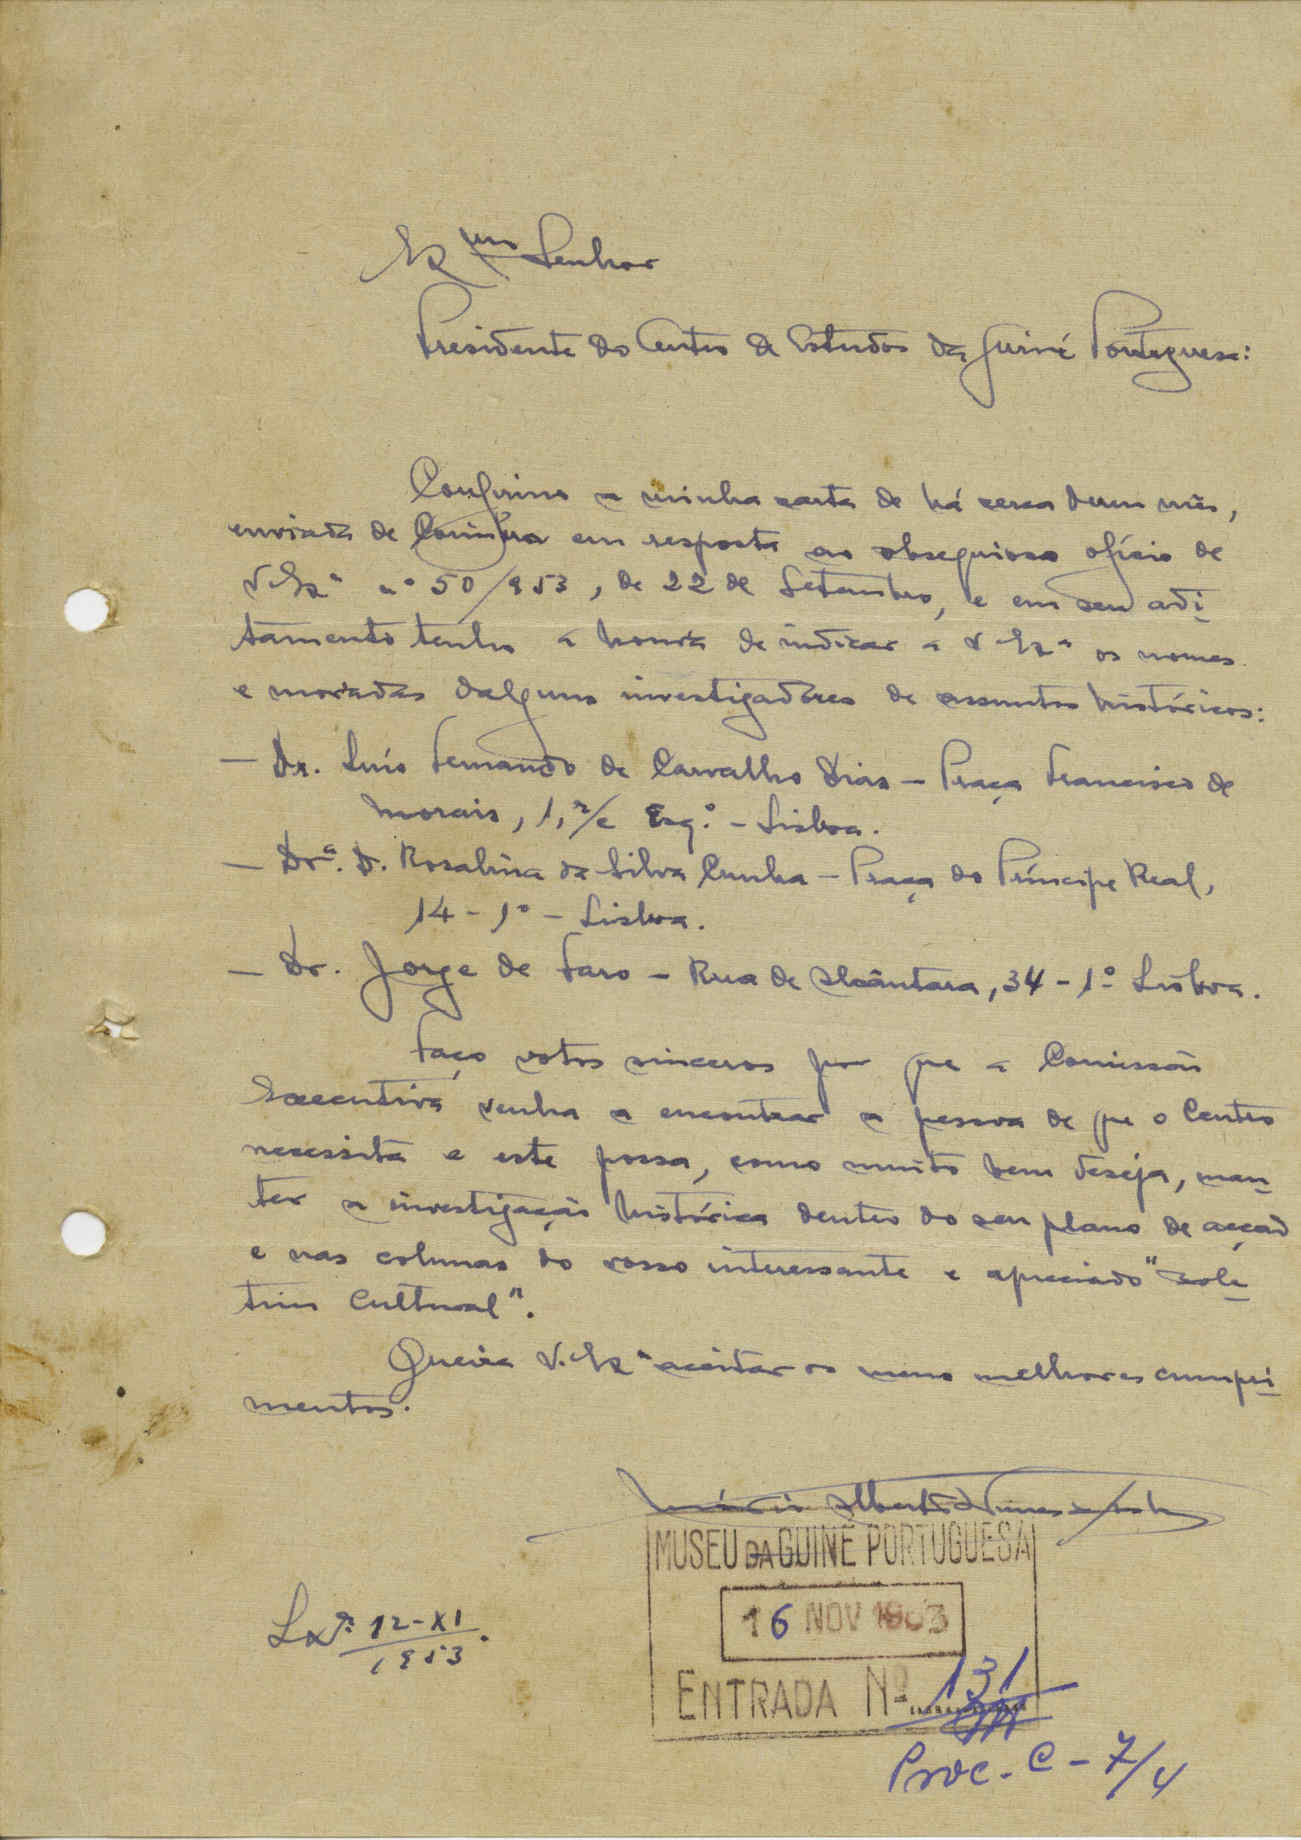 Exmo Senhor
Presidente do Centro de Estudos da Guiné Portuguesa:
Confirmo a minha carta de há cerca dum mês,
enviada de Coimbra em resposta ao obsequioso ofício de
V. Exª nº 50/953, de 22 de Setembro, e em seu adi-
tamento tenho a honra de indicar a V. Exª os nomes
e moradas dalguns investigadores de assuntos históricos:
— Dr. Luís Fernando de Carvalho Dias — Praça Francisco de
Morais, 1, r/c Esq.º - Lisboa.
— Drª. D. Rosalina da Silva Cunha — Praça do Príncipe Real,
14 - 1º - Lisboa.
— Dr. Jorge de Faro — Rua de Alcântara, 34 - 1º Lisboa.
Faço votos sinceros por que a Comissão
Executiva venha a encontrar a pessoa de que o Centro
necessita e este possa, como muito bem deseja, man-
ter a investigação histórica dentro do seu plano de acção
e nas colunas do vosso interessante e apreciado "Bole-
tim Cultural".
Queira V. Exª aceitar os meus melhores cumpri-
mentos.
Mário Alberto Nunes
MUSEU DA GUINÉ PORTUGUESA
16 NOV 1953
Lxª. 12-XI
1953.
ENTRADA Nº 131
Proc. C - 7/4